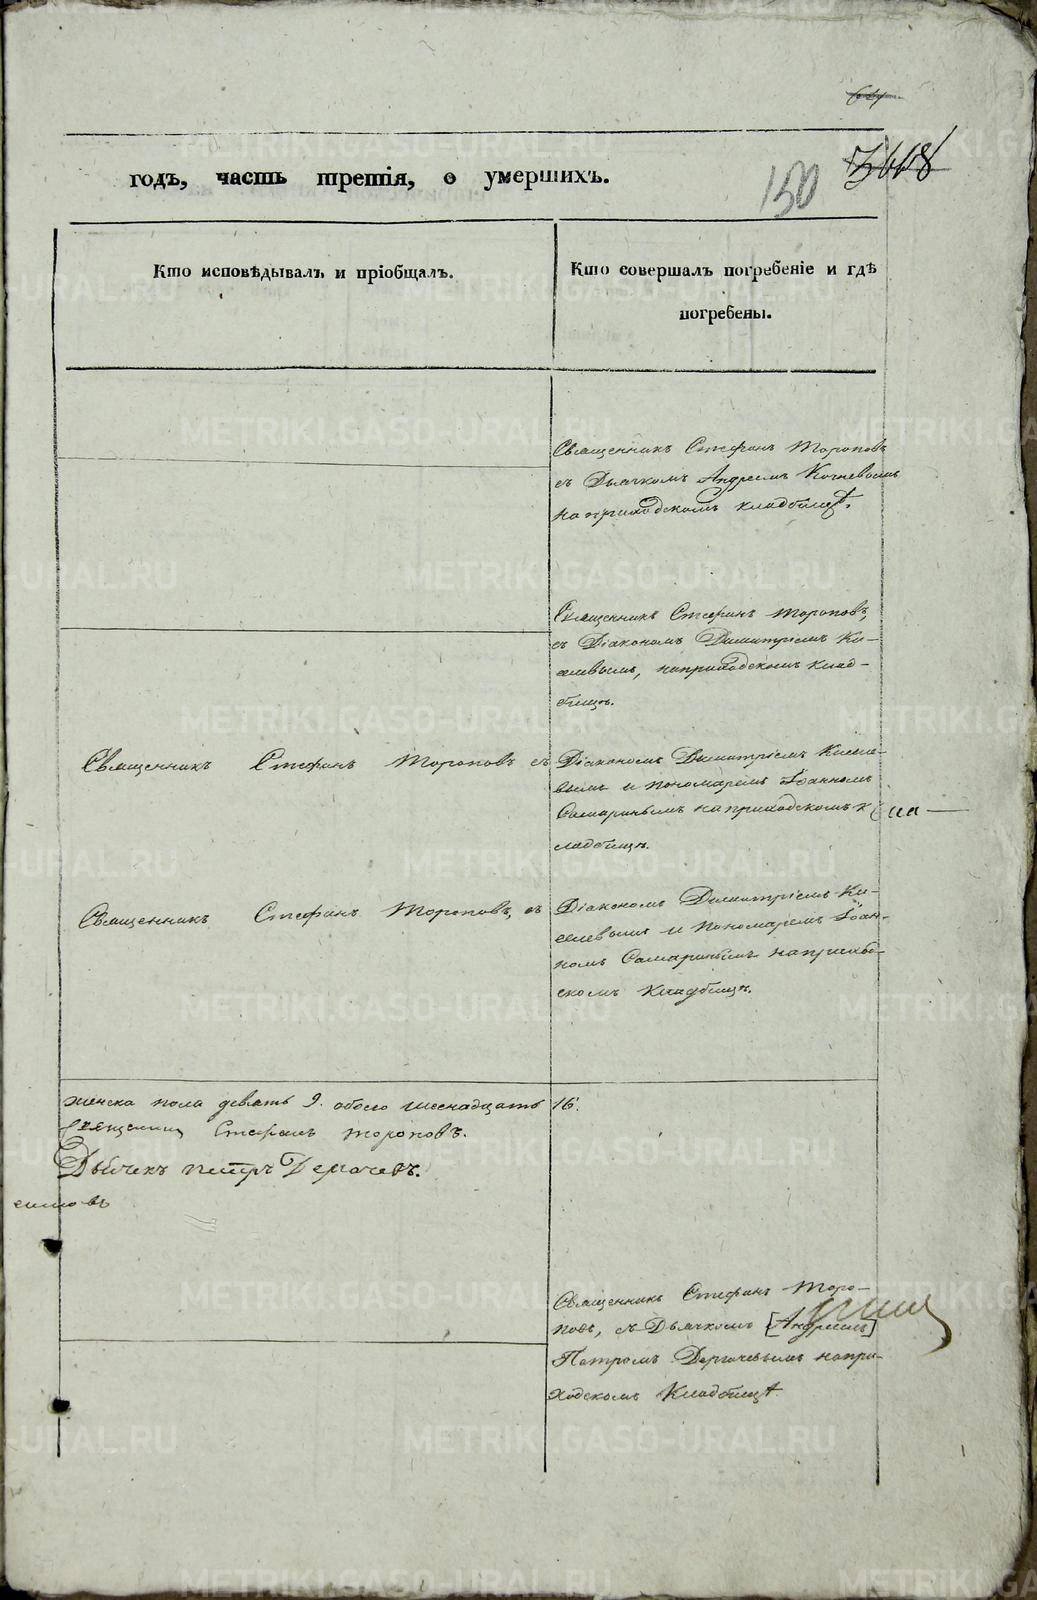 годъ, часть третія, о умершихъ.
150
Кто исповѣдывалъ и пріобщалъ.
Кто совершалъ погребеніе и гдѣ
погребены.
Священникъ Стефанъ Тороповъ
съ Дьячкомъ Андреемъ Кочневымъ
на приходскомъ кладбищѣ.
Священникъ Стефанъ Тороповъ,
съ Діакономъ Димитріемъ Ки-
селевымъ, на приходскомъ клад-
бищѣ.
Священникъ Стефанъ Тороповъ съ
Діакономъ Димитріемъ Киселе-
вымъ и пономаремъ Іоанномъ
Самаринымъ на приходскомъ к
ладбищѣ.
Священникъ Стефанъ Тороповъ, съ
Діакономъ Димитріемъ Ки-
селевымъ и пономаремъ Іоан-
номъ Самаринымъ на приход-
скомъ кладбищѣ.
женска пола девять 9. обоего шеснадцать 16.
Священникъ Стефанъ Тороповъ.
Дьячекъ петръ Дергачевъ.
Священникъ Стефанъ Торо-
повъ, съ Дьячкомъ [Андреемъ]
Петромъ Дергачевымъ на при-
ходскомъ Кладбищѣ
METRIKI.GASO-URAL.RU